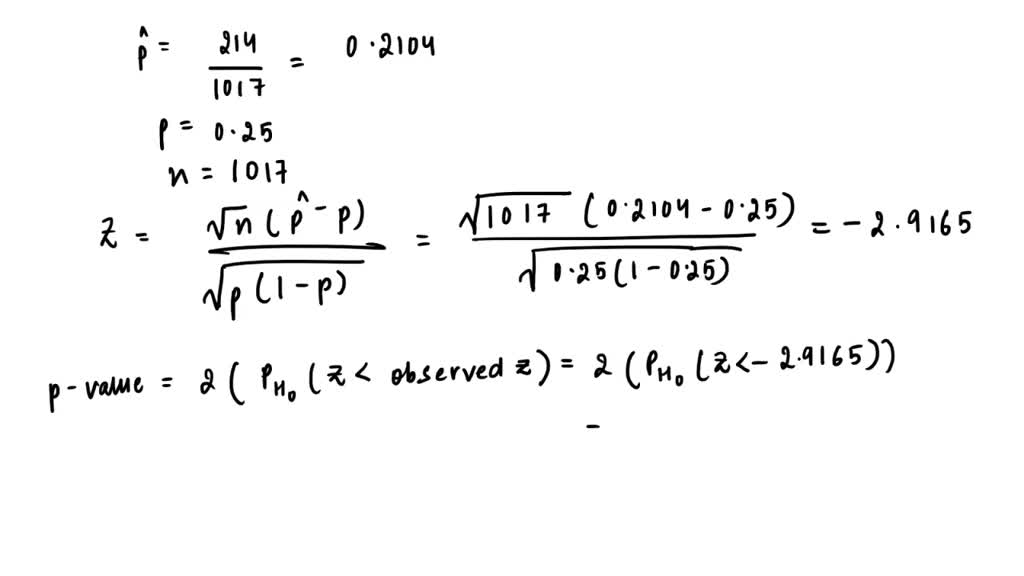 p̂ = 214/1017 = 0.2104
p = 0.25
n = 1017
Z = √n (p̂ - p) / √p(1-p) = √1017 (0.2104 - 0.25) / √0.25(1-0.25) = -2.9165
p-value = 2 ( P_H₀ (Z < observed z) = 2 (P_H₀ (Z < -2.9165))
-